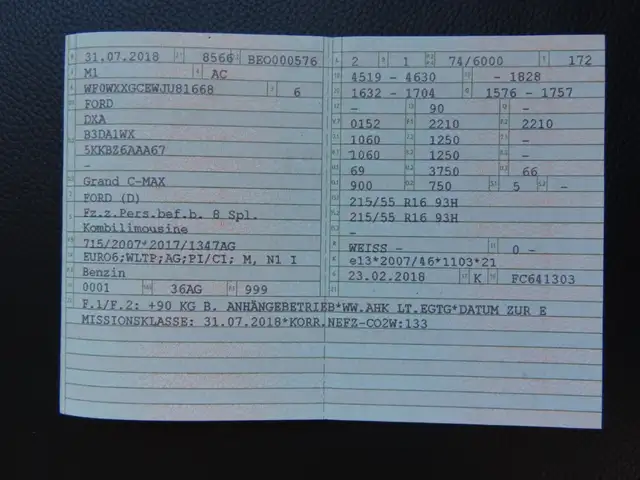 31.07.2018 8566 BEO000576
M1 AC
WF0WXXGCEWJU81668 6
FORD
DXA
B3DA1WX
5KKBZ6AAA67
-
Grand C-MAX
FORD (D)
Fz.z.Pers.bef.b. 8 Spl.
Kombilimousine
715/2007*2017/1347AG
EURO6;WLTP;AG;PI/CI; M, N1 I
Benzin
0001 36AG 999
2 1 74/6000 172
4519 - 4630 - 1828
1632 - 1704 1576 - 1757
- 90 -
0152 2210 2210
1060 1250 -
1060 1250 -
69 3750 66
900 750 5 -
215/55 R16 93H
215/55 R16 93H
-
WEISS - 0 -
e13*2007/46*1103*21
23.02.2018 K FC641303
F.1/F.2: +90 KG B. ANHÄNGEBETRIEB*WW.AHK LT.EGTG*DATUM ZUR E
MISSIONSKLASSE: 31.07.2018*KORR.NEFZ-CO2W:133